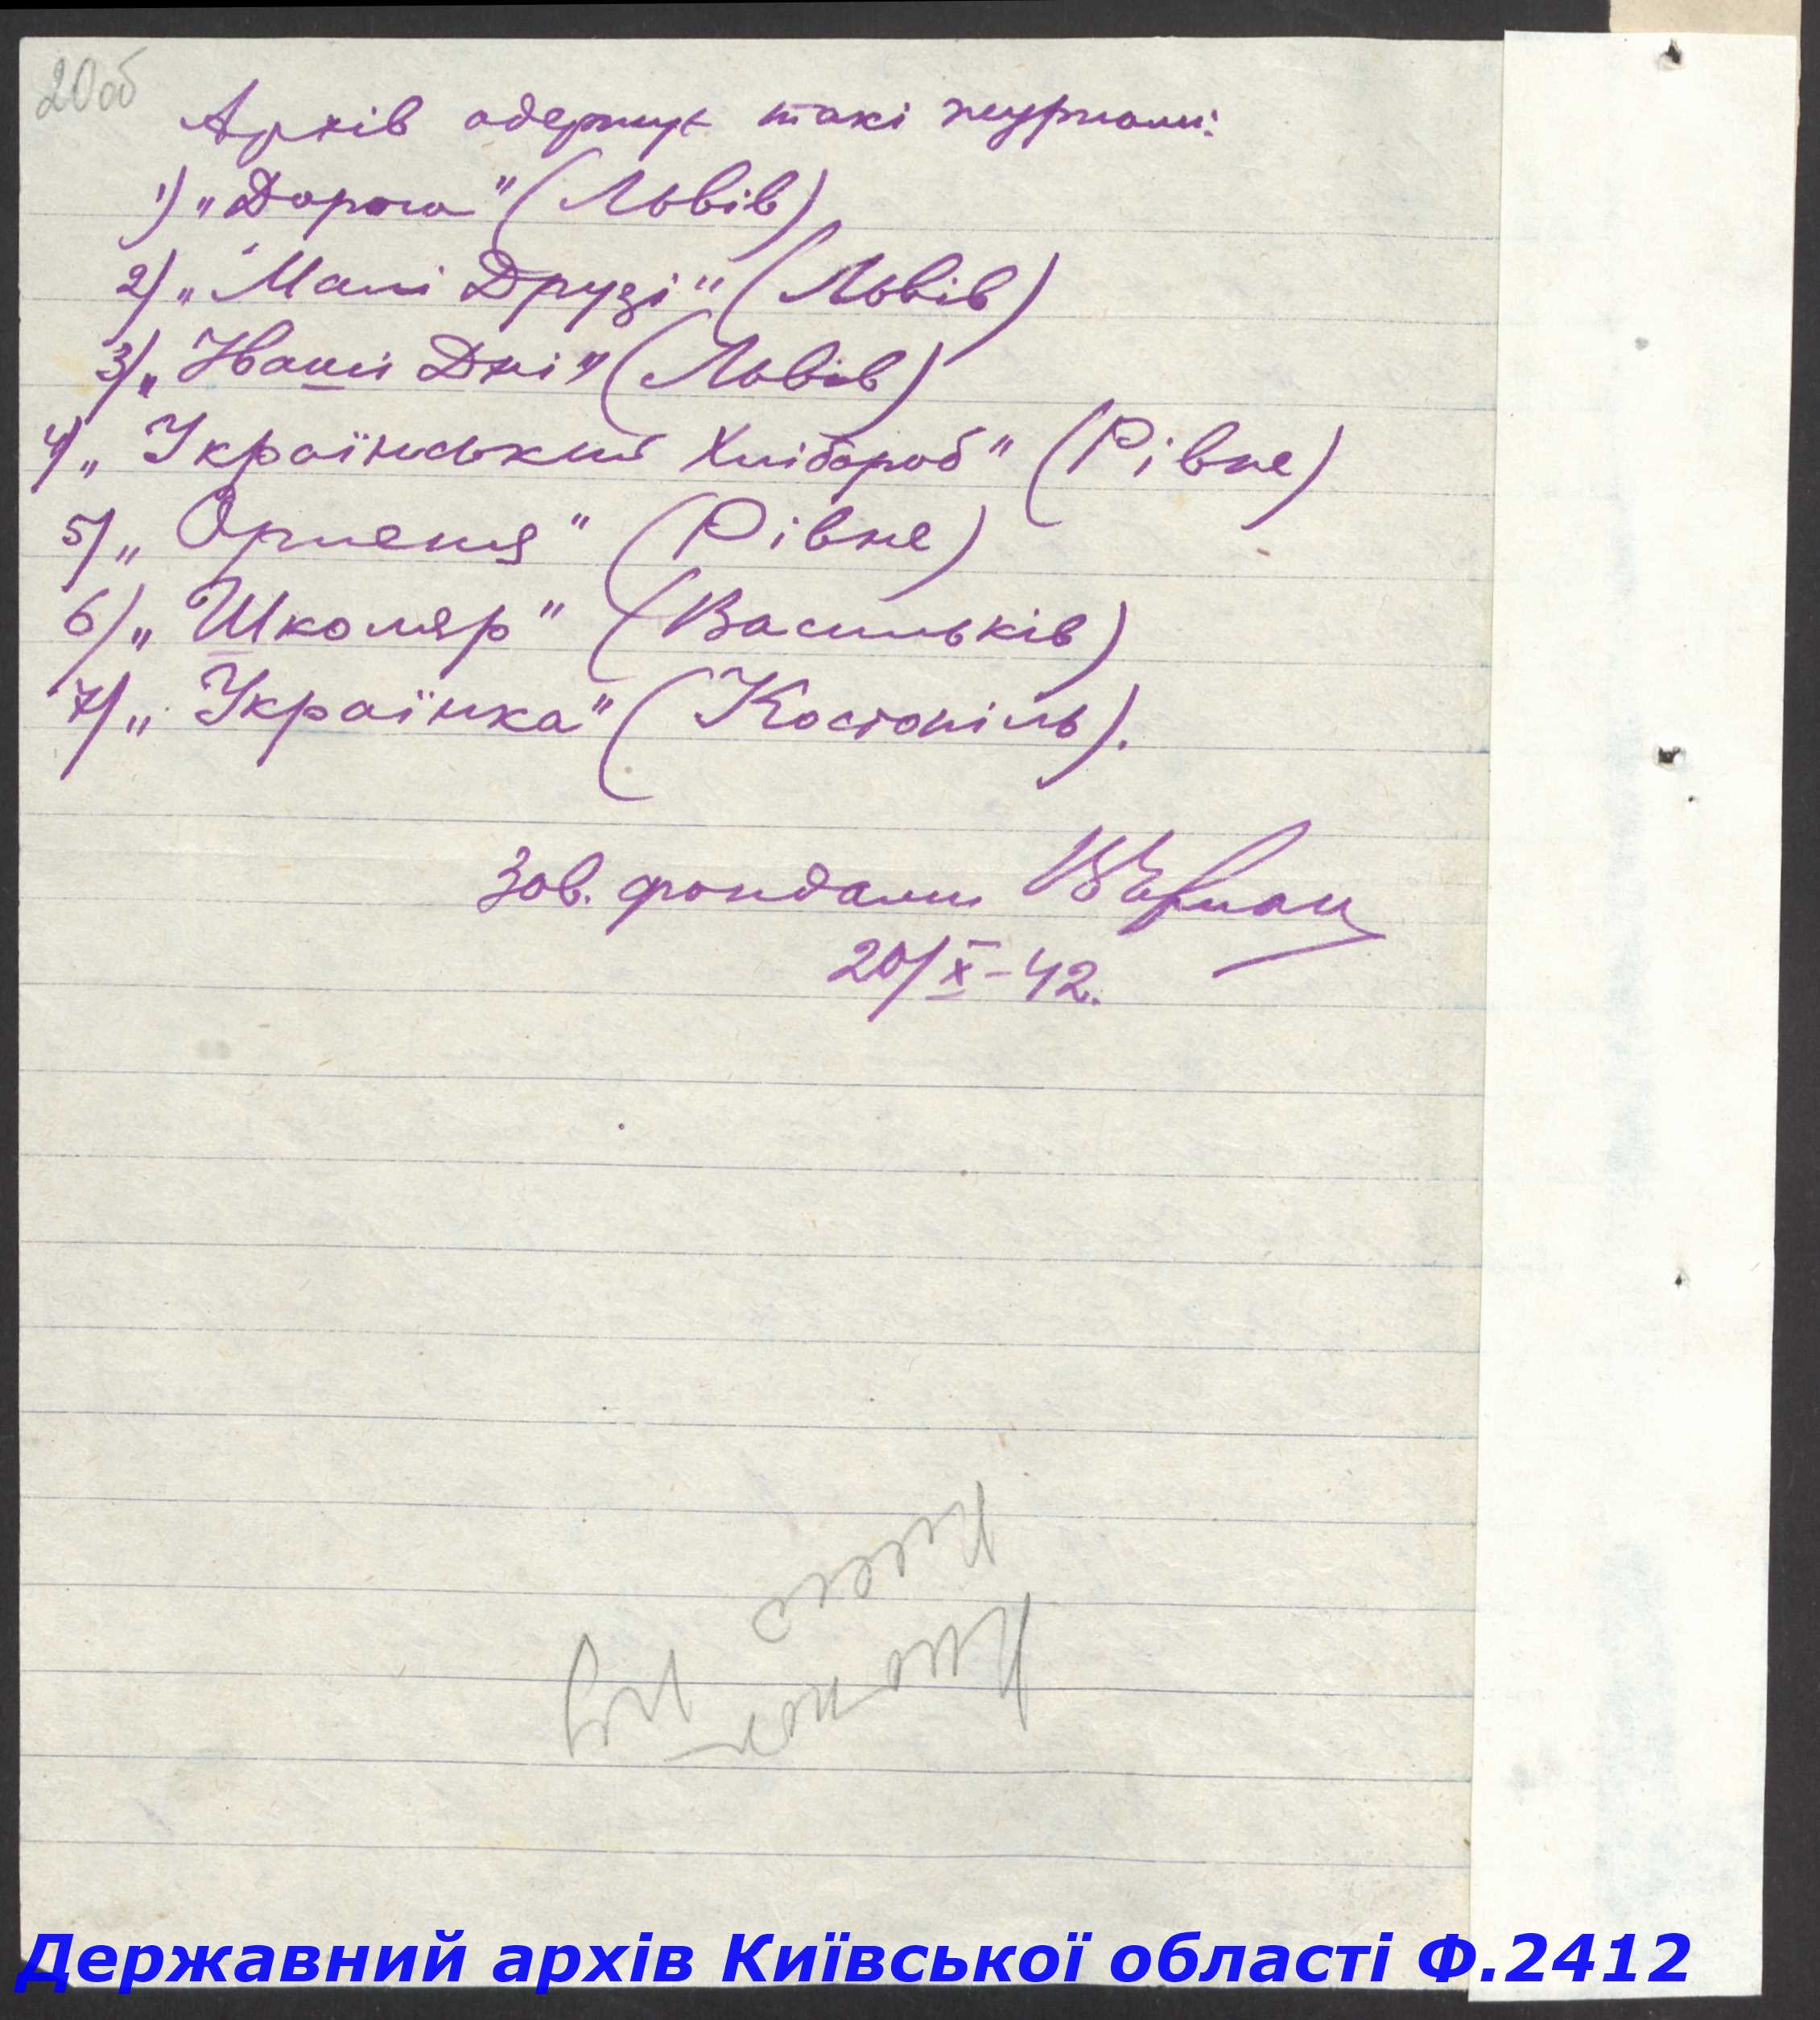 20об
Архів одержує такі журнали:
1) „Дорога" (Львів)
2) „Малі Друзі" (Львів)
3) „Наші Дні" (Львів)
4) „Український Хлібороб" (Рівне)
5) „Орленя" (Рівне)
6) „Школяр" (Васильків)
7) „Українка" (Костопіль).
Зав. фондами
20/X-42.
Державний архів Київської області Ф.2412